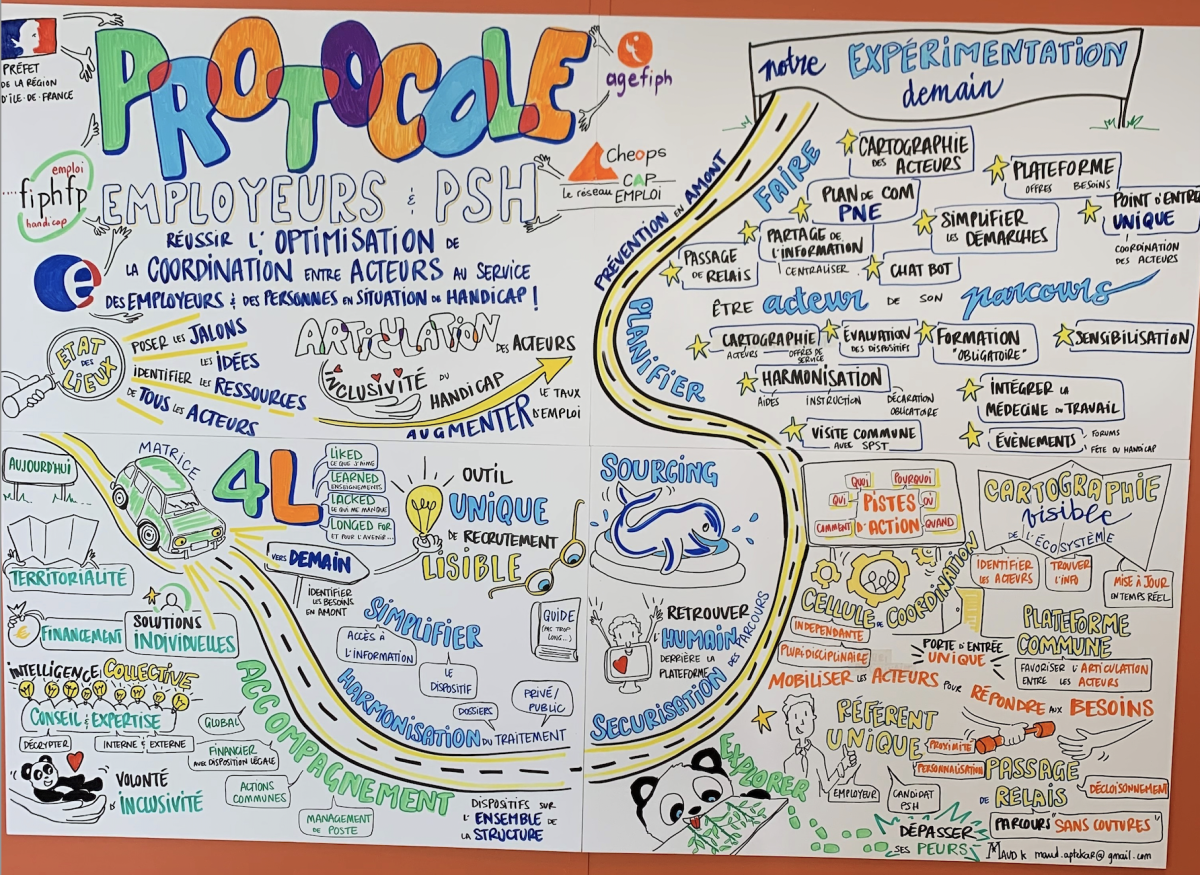 PRÉFET
DE LA RÉGION
D'ÎLE-DE-FRANCE
PROTOCOLE
agefiph
emploi
fiphfp
handicap
Cheops
CAP
Le réseau EMPLOI
EMPLOYEURS & PSH
RÉUSSIR L'OPTIMISATION DE
LA COORDINATION ENTRE ACTEURS AU SERVICE
DES EMPLOYEURS & DES PERSONNES EN SITUATION DE HANDICAP !
ETAT
DES
LIEUX
POSER LES JALONS
LES IDÉES
IDENTIFIER LES RESSOURCES
DE TOUS LES ACTEURS
ARTICULATION
DES ACTEURS
INCLUSIVITÉ DU
HANDICAP
AUGMENTER
LE TAUX
D'EMPLOI
notre EXPÉRIMENTATION
demain
PRÉVENTION EN AMONT
FAIRE
CARTOGRAPHIE
DES ACTEURS
PLATEFORME
OFFRES BESOINS
PLAN DE COM
PNE
POINT D'ENTRÉE
UNIQUE
COORDINATION
DES ACTEURS
SIMPLIFIER
LES DÉMARCHES
PARTAGE DE
L'INFORMATION
CENTRALISER
PASSAGE
DE RELAIS
CHAT BOT
ÊTRE acteur DE SON parcours
PLANIFIER
CARTOGRAPHIE
ACTEURS
OFFRES DE
SERVICE
ÉVALUATION
DES DISPOSITIFS
FORMATION
"OBLIGATOIRE"
SENSIBILISATION
HARMONISATION
AIDES
INSTRUCTION
DÉCLARATION
OBLIGATOIRE
INTÉGRER LA
MÉDECINE DU TRAVAIL
VISITE COMMUNE
AVEC SPST
ÉVÈNEMENTS
FORUMS
FÊTE DU HANDICAP
AUJOURD'HUI
MATRICE
4L
LIKED
CE QUE J'AIME
LEARNED
ENSEIGNEMENTS
LACKED
CE QUI ME MANQUE
LONGED FOR
ET POUR L'AVENIR...
VERS DEMAIN
IDENTIFIER
LES BESOINS
EN AMONT
OUTIL
UNIQUE
DE RECRUTEMENT
LISIBLE
TERRITORIALITÉ
FINANCEMENT
SOLUTIONS
INDIVIDUELLES
INTELLIGENCE COLLECTIVE
CONSEIL & EXPERTISE
DÉCRYPTER
INTERNE & EXTERNE
VOLONTÉ
D'INCLUSIVITÉ
ACCOMPAGNEMENT
GLOBAL
FINANCIER
AVEC DISPOSITION LÉGALE
ACTIONS
COMMUNES
MANAGEMENT
DE POSTE
DISPOSITIFS SUR
L'ENSEMBLE DE
LA STRUCTURE
SIMPLIFIER
ACCÈS À
L'INFORMATION
LE
DISPOSITIF
GUIDE
(PAS TROP
LONG...)
HARMONISATION DU TRAITEMENT
DOSSIERS
PRIVÉ/
PUBLIC
SOURCING
RETROUVER
L'HUMAIN
DERRIÈRE LA
PLATEFORME
SECURISATION DES PARCOURS
EXPLORER
QUOI
POURQUOI
QUI
PISTES
D'ACTION
OÙ
COMMENT
QUAND
CARTOGRAPHIE
visible
DE L'ÉCOSYSTÈME
IDENTIFIER
LES ACTEURS
TROUVER
L'INFO
MISE À JOUR
EN TEMPS RÉEL
CELLULE DE COORDINATION
INDEPENDANTE
PLURIDISCIPLINAIRE
PORTE D'ENTRÉE
UNIQUE
PLATEFORME
COMMUNE
FAVORISER L'ARTICULATION
ENTRE LES ACTEURS
MOBILISER LES ACTEURS POUR RÉPONDRE AUX BESOINS
RÉFÉRENT
UNIQUE
PROXIMITÉ
PERSONNALISATION
EMPLOYEUR
CANDIDAT
PSH
PASSAGE
DE RELAIS
DÉCLOISONNEMENT
PARCOURS "SANS COUTURES"
DÉPASSER
SES PEURS
MAUD K maud.aptekar@gmail.com